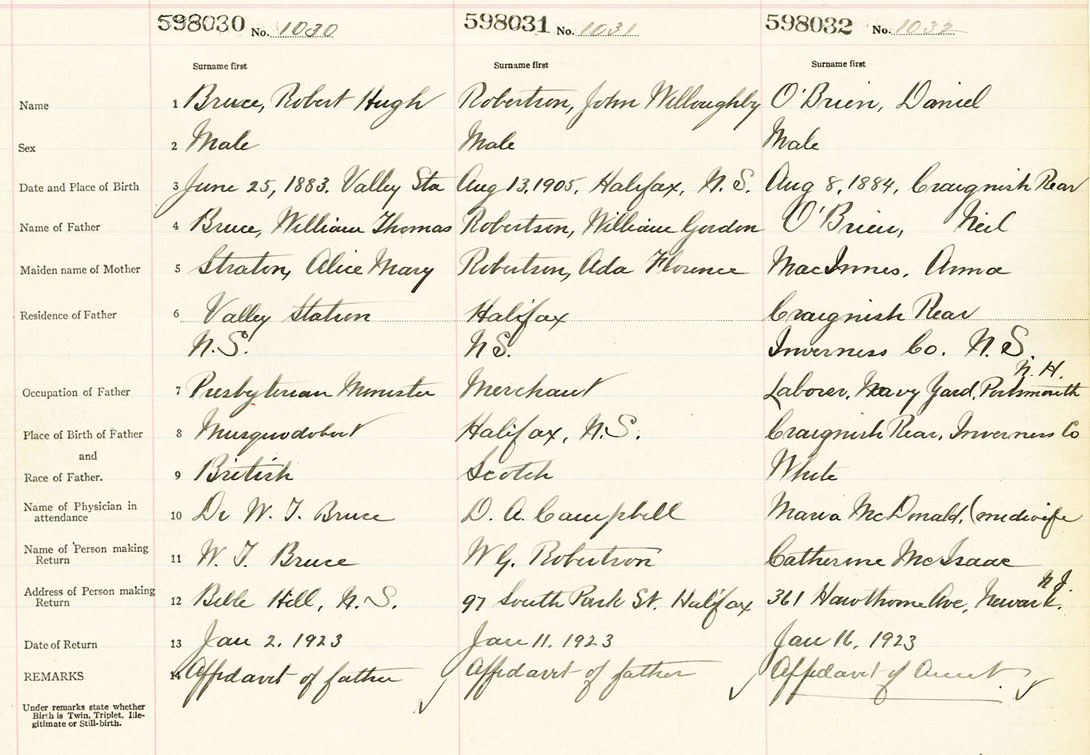 598030 No. 1030 598031 No. 1031 598032 No. 1032
Surname first Surname first Surname first
Name 1 Bruce, Robert Hugh Robertson, John Willoughby O'Brien, Daniel
Sex 2 Male Male Male
Date and Place of Birth 3 June 25, 1883. Valley Sta Aug 13, 1905, Halifax, N.S. Aug 8, 1884, Craignish Rear
Name of Father 4 Bruce, William Thomas Robertson, William Gordon O'Brien, Neil
Maiden name of Mother 5 Straton, Alice Mary Robertson, Ada Florence MacInnes, Anna
Residence of Father 6 Valley Station Halifax Craignish Rear
N.S. N.S. Inverness Co. N.S.
N.H.
Occupation of Father 7 Presbyterian Minister Merchant Laborer, Navy Yard, Portsmouth
Place of Birth of Father 8 Musquodobort Halifax, N.S. Craignish Rear, Inverness Co
and
Race of Father. 9 British Scotch White
Name of Physician in
attendance 10 Dr W. T. Bruce D. A. Campbell Maria McDonald, (midwife
Name of Person making
Return 11 W. T. Bruce W G. Robertson Catherine McIsaac
N.J.
Address of Person making
Return 12 Bible Hill, N.S. 97 South Park St. Halifax 361 Hawthorne Ave, Newark.
Date of Return 13 Jan 2, 1923 Jan 11, 1923 Jan 16, 1923
REMARKS 14 Affidavit of father Affidavit of father Affidavit of Aunt
Under remarks state whether
Birth is Twin, Triplet, Ille-
gitimate or Still-birth.